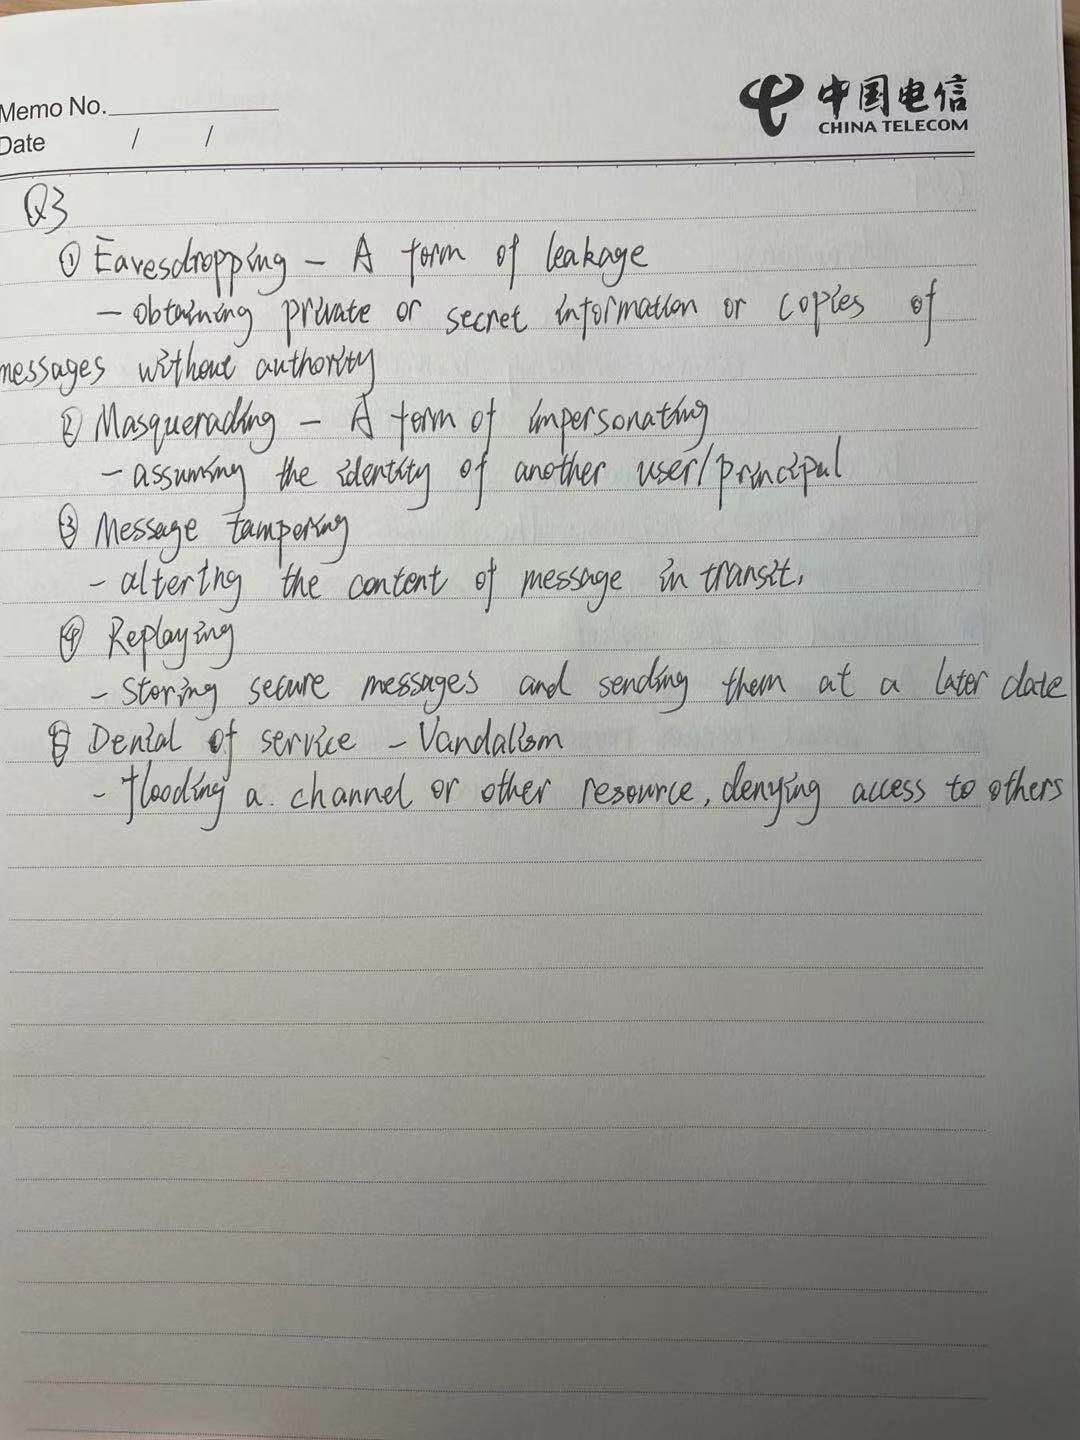 Memo No.
Date / /
中国电信
CHINA TELECOM
Q3
① Eavesdropping - A form of leakage
- obtaining private or secret information or copies of
messages without authority
② Masquerading - A form of impersonating
- assuming the identity of another user/principal
③ Message tampering
- altering the content of message in transit.
④ Replaying
- Storing secure messages and sending them at a later date
⑤ Denial of service - Vandalism
- flooding a channel or other resource, denying access to others